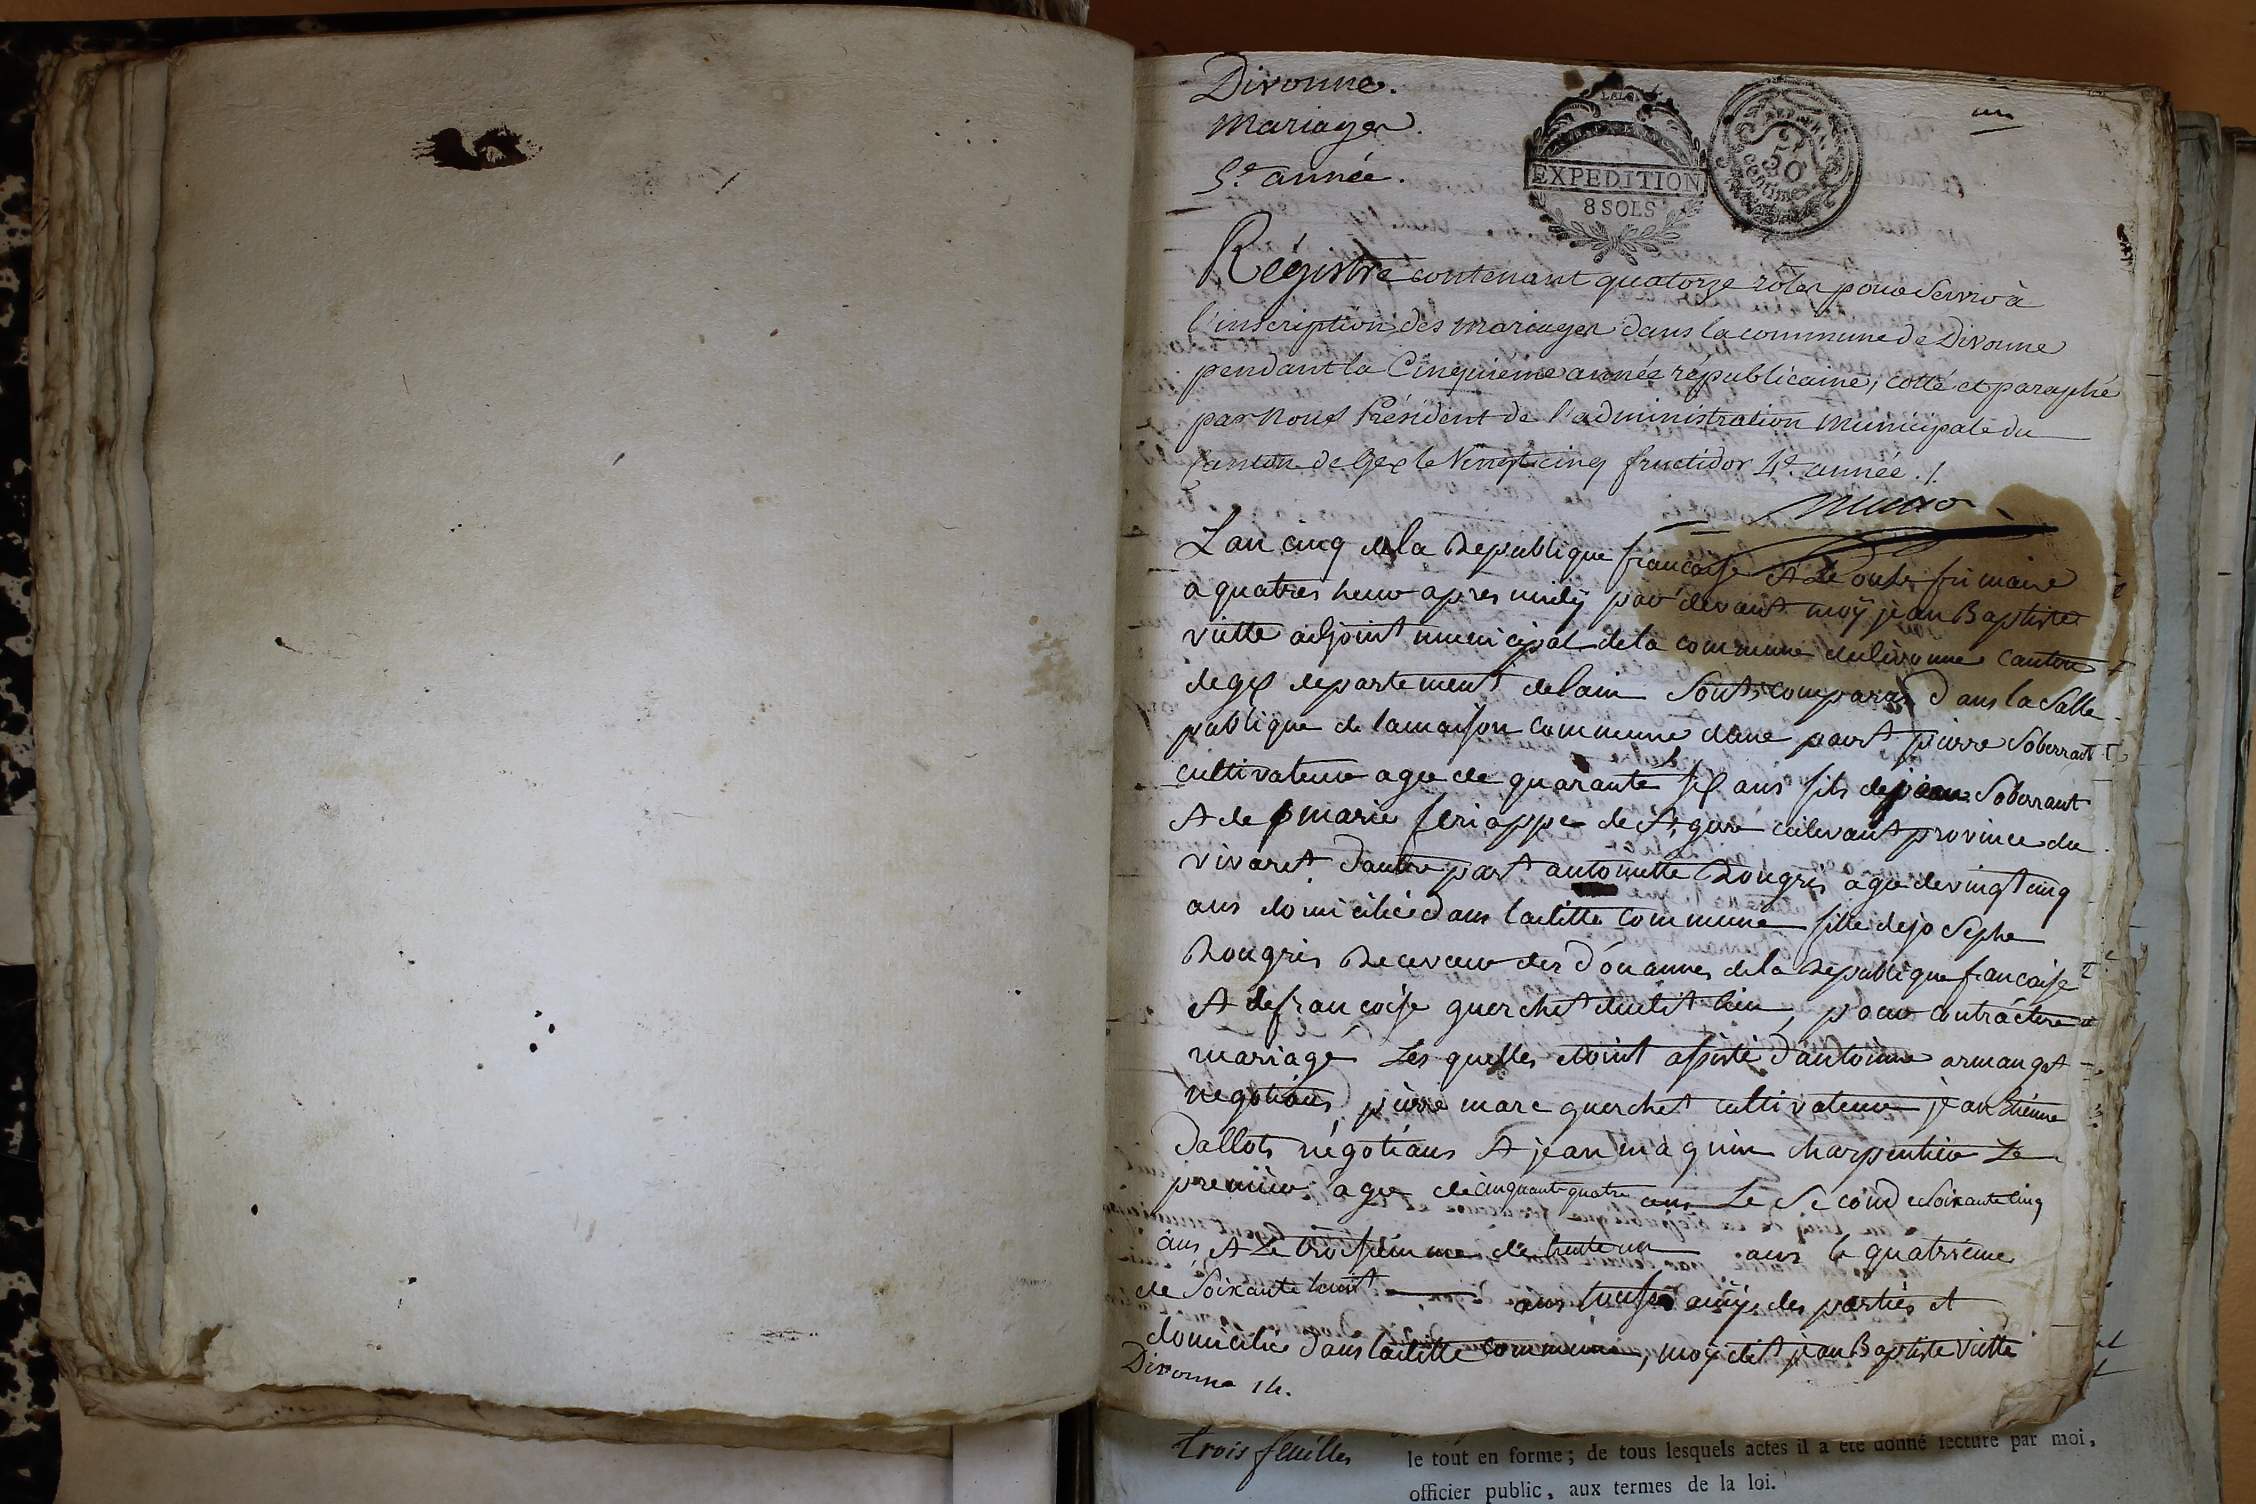 Divonne.
Mariages.
5.e année.
EXPEDITION
8 SOLS
50
centimes
un
Régistre contenant quatorze rôles pour servir à
l'inscription des mariages dans la commune de Divonne
pendant la Cinquieme année républicaine, cotté et paraphé
par nous Président de l'administration municipale du
Canton de Gex le Vingt cinq fructidor 4e. année ./.
L'an cinq de la Republique francaise et le onze frimaire
a quatres heur apres midy par devant moÿ jean Baptiste
viette adjoint municipal de la commune de divonne canton
de gex departement de lain sonts comparus dans la salle
publique de lamaison commune dune part pierre Soberrant
cultivateur age de quarante six ans fils de jean Soberrant
et de marie feriappe de St. gure cidevant province du
vivaret d'autre part antoinette Rougris agee de vingt cinq
ans domiciliée dans laditte commune fille de joSephe
Rougris Receveur des doüannes de la Republique francaise
et de francoise querchet dudit lieu, pour contractere
mariage Les quelles etoint assisté d'antoinne armanget
negotians pierre marc querchet cultivateur jean Etienne
Dallots négotians et jean maquin charpentier Le
premier age de cinquante quatre ans Le Second Soixante Cinq
ans et Le troisieme de trente un ans le quatrieme
de Soixante huit ans tousse amÿ des parties et
domicilié dans laditte commune, moÿ dit jean Baptiste viette
Divonne 14.
trois feuilles
le tout en forme; de tous lesquels actes il a été donné lecture par moi,
officier public, aux termes de la loi.